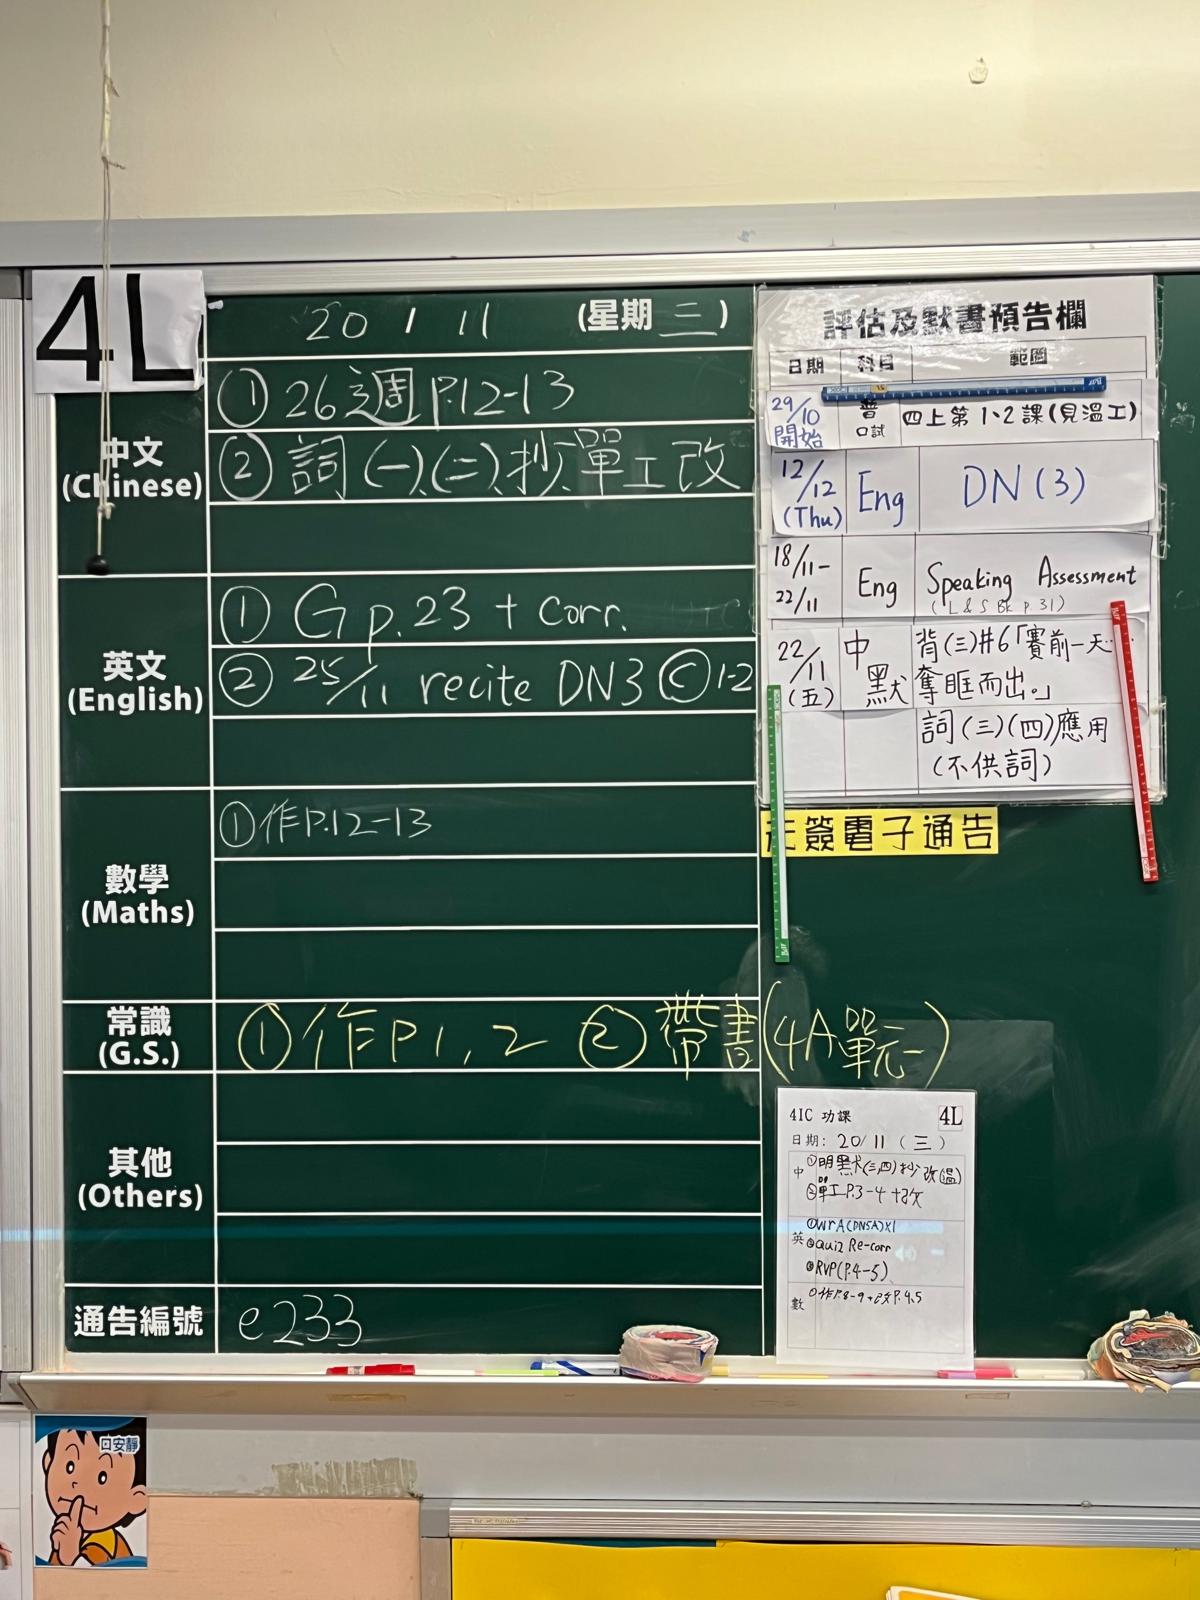 4L
20 / 11 (星期 三 )
中文
(Chinese)
① 26週 P.12-13
② 詞(一)、(二)、抄、單工改
英文
(English)
① G p.23 + corr.
② 25/11 recite DN3 Ⓒ 1-2
數學
(Maths)
① 作P.12-13
常識
(G.S.)
① 作P 1, 2 ② 帶書(4A單元一)
其他
(Others)
通告編號
e233
評估及默書預告欄
日期 科目 範圍
29/10 開始 普 口試 四上第1、2課(見溫工)
12/12 (Thu) Eng DN (3)
18/11 - 22/11 Eng Speaking Assessment
(L & S Bk p.31)
22/11 (五) 中默 背(三)#6「賽前一天
奪眶而出。」
詞(三)(四)應用
(不供詞)
簽電子通告
4IC 功課 4L
日期: 20/11 (三)
中 ①明默(三,四)抄、改(溫)
②單工P.3-4 +改
英 ①Wr A(DN5A)X1
②Quiz Re-corr
③RVP(P.4-5)
數 ①作P.8-9 +改P.4,5
安靜